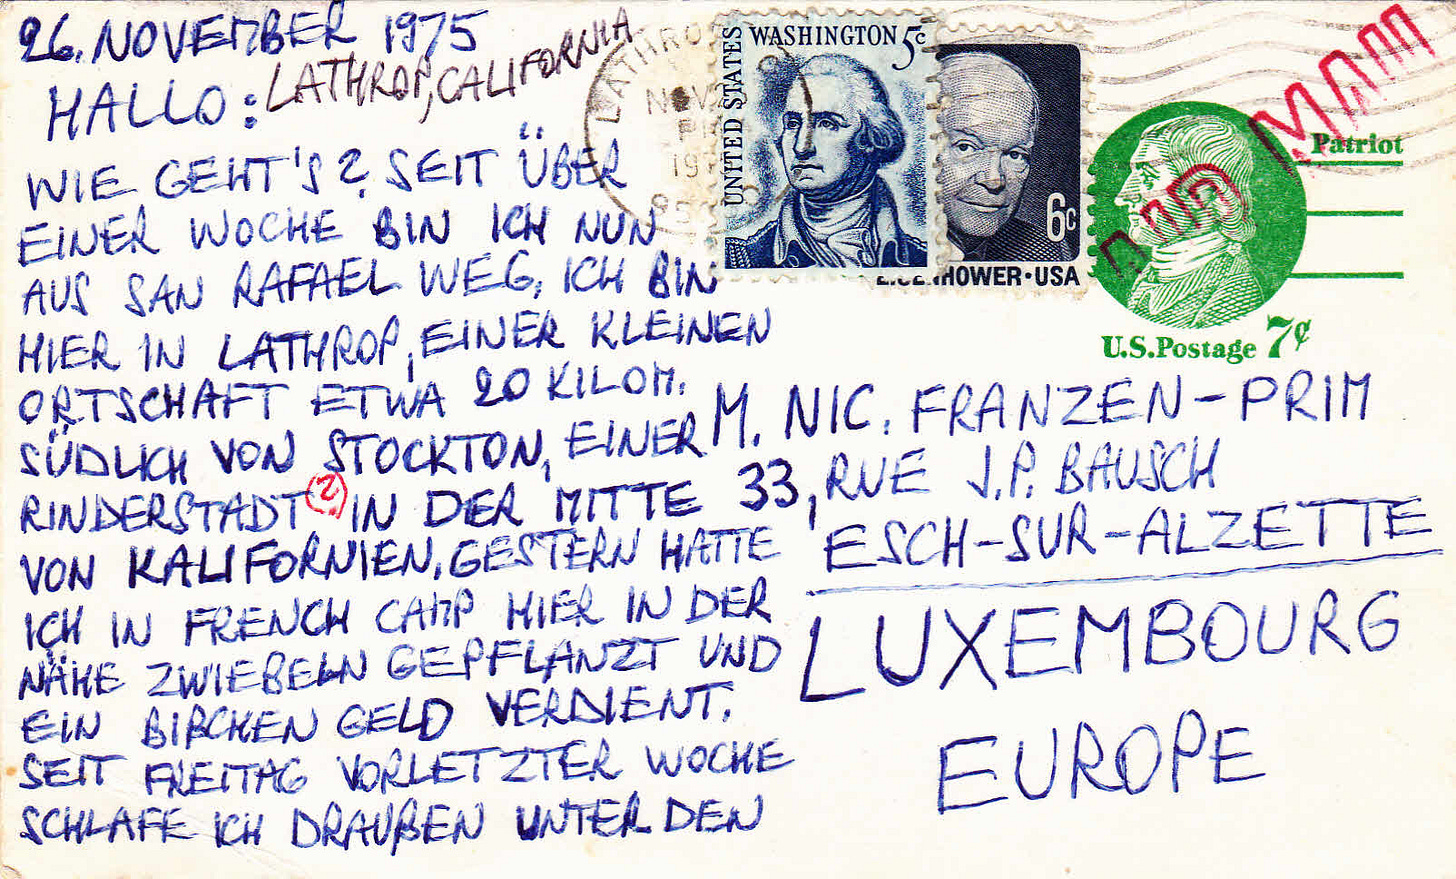 26. NOVEMBER 1975
HALLO: LATHROP, CALIFORNIA
WIE GEHT'S? SEIT ÜBER
EINER WOCHE BIN ICH NUN
AUS SAN RAFAEL WEG, ICH BIN
HIER IN LATHROP, EINER KLEINEN
ORTSCHAFT ETWA 20 KILOM.
SÜDLICH VON STOCKTON, EINER
RINDERSTADT (?) IN DER MITTE
VON KALIFORNIEN. GESTERN HATTE
ICH IN FRENCH CAMP HIER IN DER
NÄHE ZWIEBELN GEPFLANZT UND
EIN BIßCHEN GELD VERDIENT.
SEIT FREITAG VORLETZTER WOCHE
SCHLAFE ICH DRAUßEN UNTER DEN
UNITED STATES
WASHINGTON 5c
6c
EISENHOWER·USA
AIR MAIL
Patriot
U.S. Postage 7¢
M. NIC. FRANZEN-PRIM
33, RUE J.P. BAUSCH
ESCH-SUR-ALZETTE
LUXEMBOURG
EUROPE